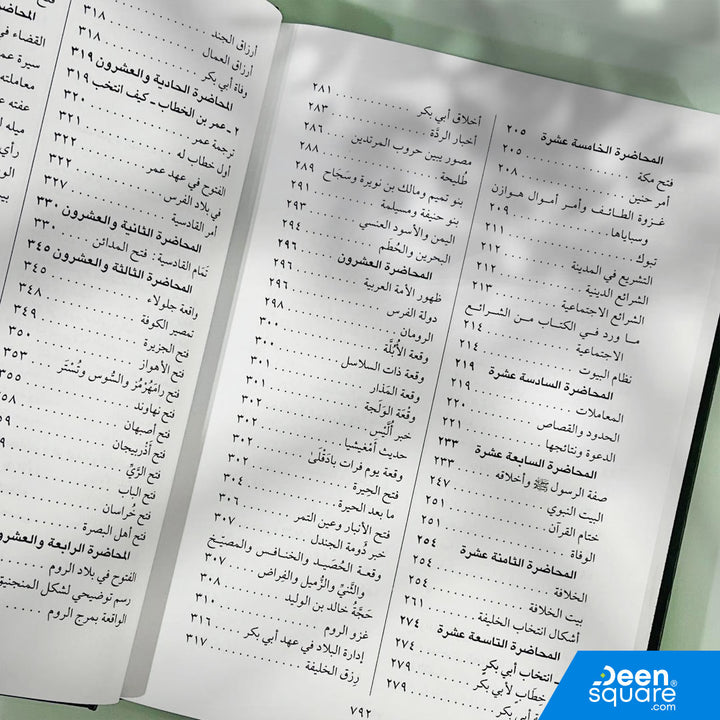 المحاضرة الخامسة عشرة ٢٠٥
فتح مكة ٢٠٥
أمر حنين ٢٠٨
غزوة الطائف وأمر أموال هوازن
وسباياها ٢٠٩
تبوك ٢١١
التشريع في المدينة ٢١٢
الشرائع الدينية ٢١٢
الشرائع الاجتماعية ٢١٣
ما ورد في الكتاب من الشرائع
الاجتماعية ٢١٤
نظام البيوت ٢١٤
المحاضرة السادسة عشرة ٢١٩
المعاملات ٢١٩
الحدود والقصاص ٢٢٠
الدعوة ونتائجها ٢٢١
المحاضرة السابعة عشرة ٢٣٣
صفة الرسول ﷺ وأخلاقه ٢٣٣
البيت النبوي ٢٤٧
ختام القرآن ٢٥١
الوفاة ٢٥١
المحاضرة الثامنة عشرة ٢٥٤
الخلافة ٢٥٤
بيت الخلافة ٢٥٤
أشكال انتخاب الخليفة ٢٦١
المحاضرة التاسعة عشرة ٢٧٤
انتخاب أبي بكر ٢٧٤
خطاب لأبي بكر ٢٧٩
أبي بكر ٢٧٩
أخلاق أبي بكر ٢٨١
أخبار الردَّة ٢٨٣
مصور يبين حروب المرتدين ٢٨٦
طُليحة ٢٨٨
بنو تميم ومالك بن نويرة وسَجَاح ٢٨٩
بنو حنيفة ومسيلمة ٢٩١
اليمن والأسود العنسي ٢٩٣
البحرين والحُطَم ٢٩٤
المحاضرة العشرون ٢٩٦
ظهور الأمة العربية ٢٩٦
دولة الفرس ٢٩٦
الرومان ٢٩٨
وقعة الأُبُلَّة ٣٠٠
وقعة ذات السلاسل ٣٠٠
وقعة المَذار ٣٠١
وقْعَة الوَلَجة ٣٠١
خبر أُلَّيْس ٣٠٢
حديث أمغيشيا ٣٠٢
وقعة يوم فرات بادَقْلَى ٣٠٢
فتح الحِيرة ٣٠٢
ما بعد الحيرة ٣٠٤
فتح الأنبار وعين التمر ٣٠٦
خبر دُومة الجندل ٣٠٧
وقعة الحُصَيد والخنافس والمصيّخ
والثَّنِيّ والزُّميل والفِراض ٣٠٧
حَجَّةُ خالد بن الوليد ٣٠٨
غزو الروم ٣١٠
إدارة البلاد في عهد أبي بكر ٣١٦
رِزق الخليفة ٣١٧
٧٩٢
أرزاق الجند ٣١٨
أرزاق العمال ٣١٨
وفاة أبي بكر
المحاضرة الحادية والعشرون ٣١٩
٢ ـ عمر بن الخطاب ـ كيف انتخب ٣١٩
ترجمة عمر ٣٢٠
أول خطاب له ٣٢١
الفتوح في عهد عمر ٣٢٢
في بلاد الفرس ٣٢٢
أمر القادسية ٣٢٧
المحاضرة الثانية والعشرون ٣٣٠
تمام القادسية: فتح المدائن ٣٣٠
المحاضرة الثالثة والعشرون ٣٤٥
واقعة جلولاء ٣٤٥
تمصير الكوفة ٣٤٨
فتح الجزيرة ٣٤٩
فتح الأهواز ٣٥٠
فتح رامَهُرْمُز والسُّوس وتُسْتَر ٣٥٣
فتح نهاوند ٣٥٥
فتح أصبهان
فتح أذْرَبيجان
فتح الرَّيّ
فتح الباب
فتح خُراسان
فتح أهل البصرة
المحاضرة الرابعة والعشرون
الفتوح في بلاد الروم
رسم توضيحي لشكل المنجنيق
الواقعة بمرج الروم
القضاء في
سيرة عمر
معاملته
عفته
Deen
square®
.com